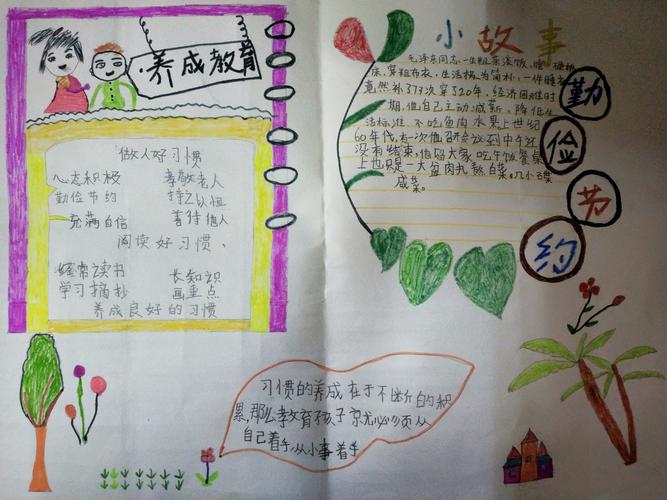 养成教育
做人好习惯
心态积极 孝敬老人
勤俭节约 持之以恒
充满自信 善待他人
阅读好习惯、
经常读书 长知识
学习摘抄 画重点
养成良好的习惯
小故事
毛泽东同志一生粗茶淡饭、睡硬板
床,穿粗布衣,生活极为简朴,一件睡衣
竟然补了73次穿了20年。经济困难时
期,他自己主动减薪、降低生
活标准,不吃鱼肉水果上世纪
60年代,有一次他召开会议到中午还
没有结束,他留大家吃午饭餐桌
上也只是一大盆肉丸熬白菜。几小碟
咸菜。
勤
俭
节
约
习惯的养成在于不断的积
累,那么教育孩子就必须从
自己着手,从小事着手